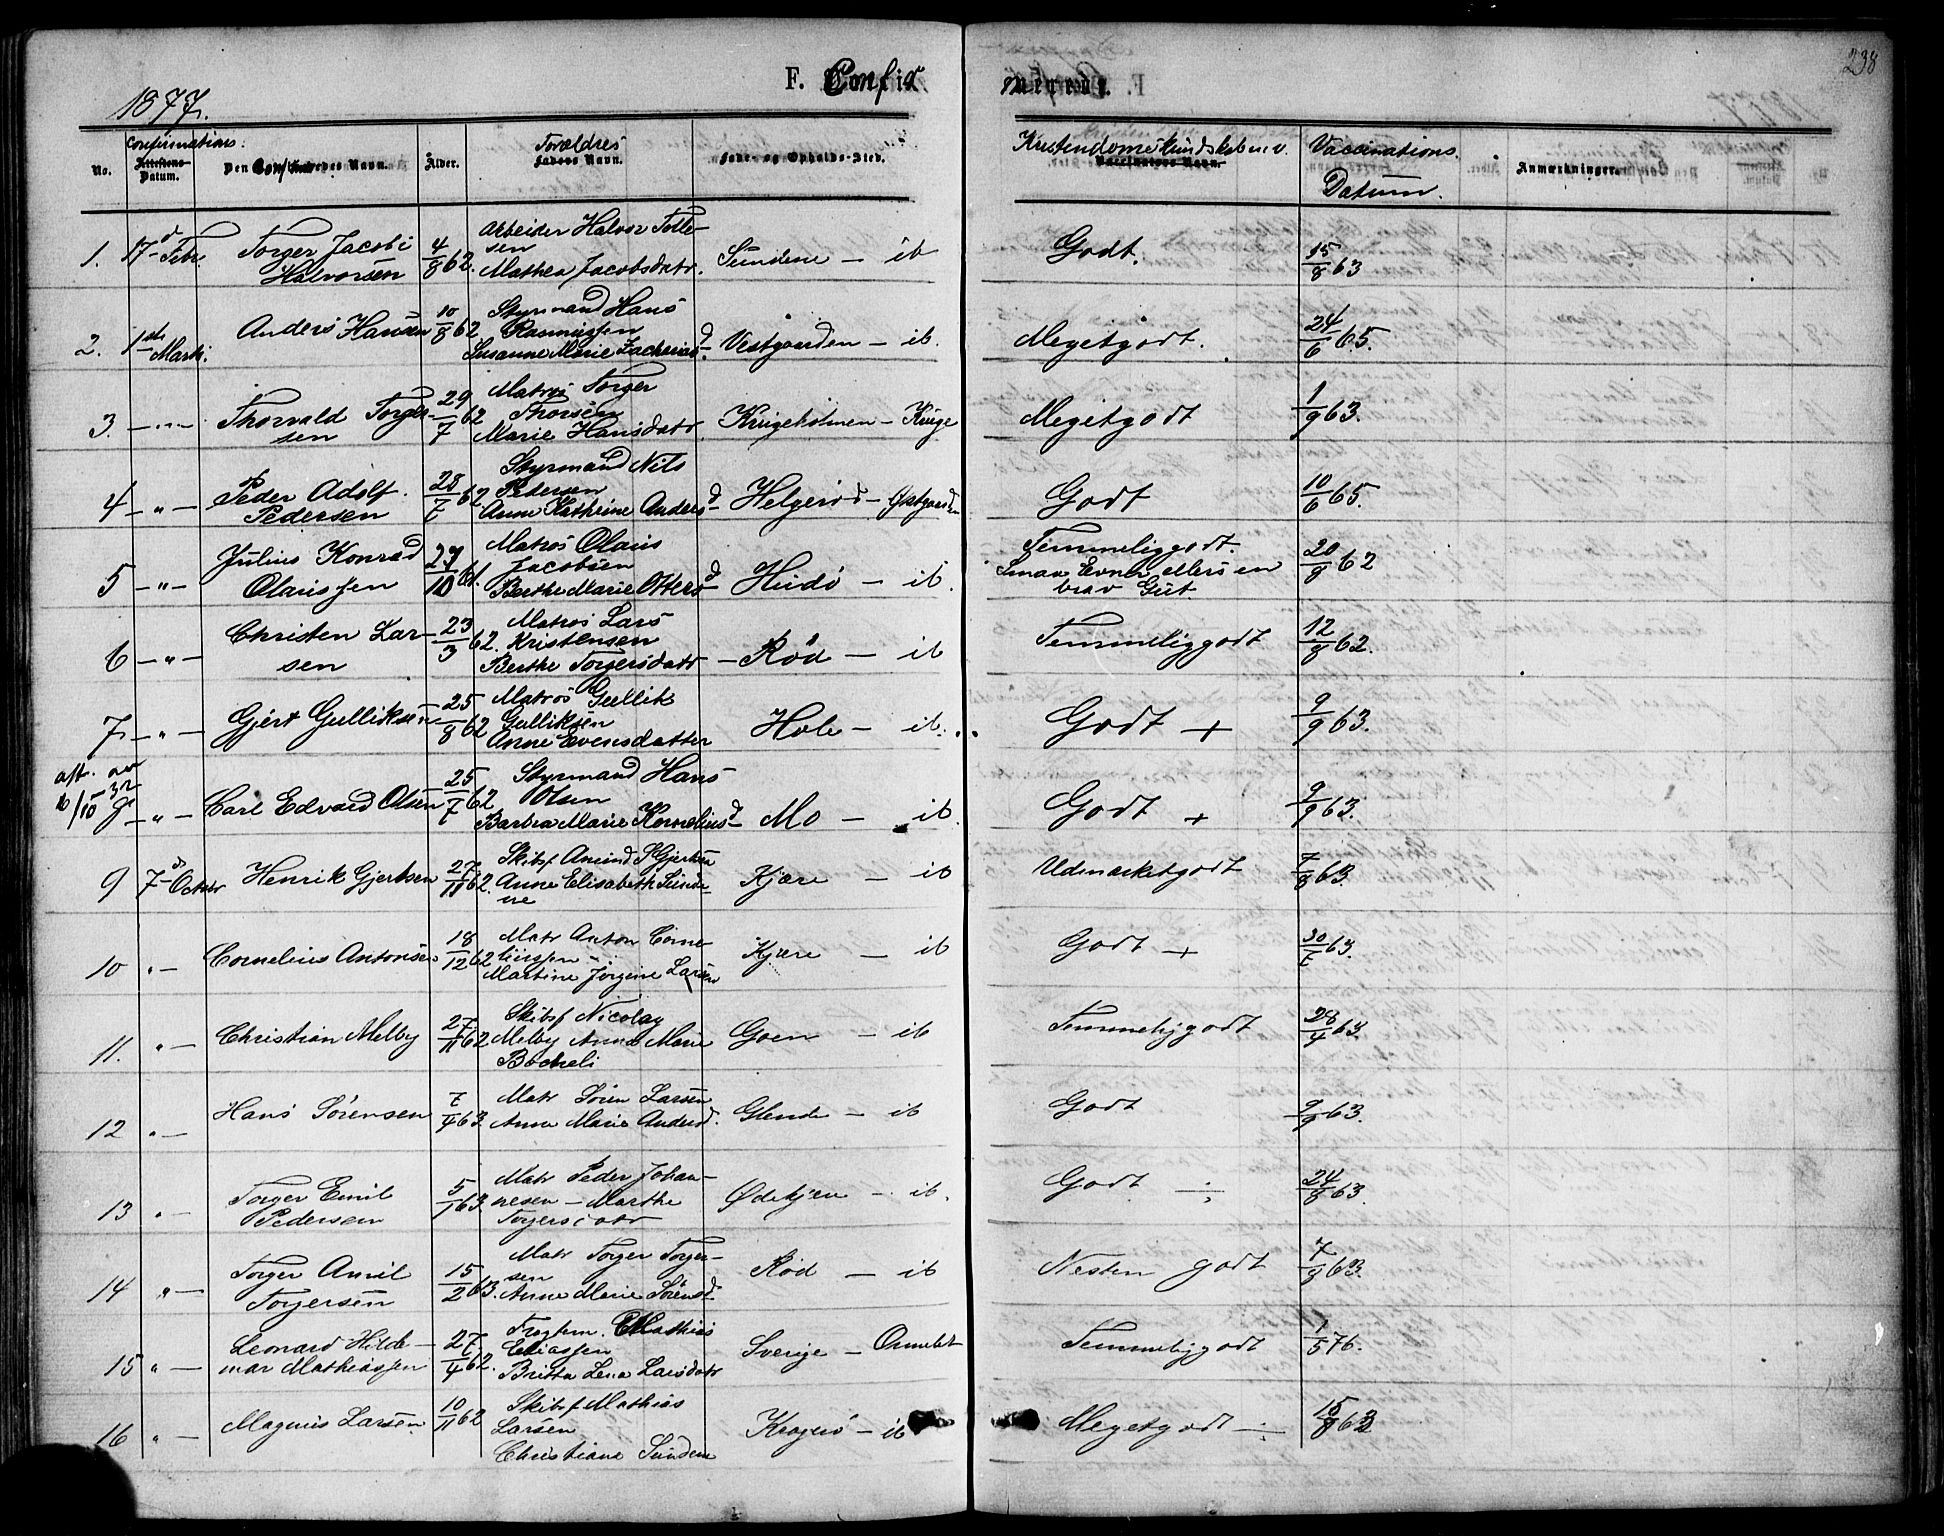 238
1877.
F. Confir
merede.
No.
Confirmations:
Attestens-
Datum.
Den Confirmeredes Navn.
Alder.
Forældres
Fadens Navn.
Føde- og Opholds-Sted.
Kristendomskundskaben.
Vaccinations
Datum.
Anmærkninger.
1. 17d Febr. Torger Jacobi Halvorsen 4/8 62. Arbeider Halvor Tollefsen Mathea Jacobsdatr. Sundene — ib Godt. 15/8 63
2. 1ste Marti. Anders Hansen 10/8 62 Styrmand Hans Rasmussen Susanne Marie Zachariasd Vestgaarden — ib. Megetgodt. 24/6 65.
3. — " — Thorvald Torgersen 29/7 62 Matros Torger Thorsen Marie Hansdatr. Krugeholmen — Kruge Megetgodt 1/9 63.
4 — " — Peder Adolf. Pedersen 28/7 62 Styrmand Nils Pedersen Anne Kathrine Andersd Helgerød — Østgaarden Godt 10/6 65.
5 — " — Julius Konrad Olaussen 27/10 61. Matros Olaus Jacobsen Berthe Marie Ottersd Huidø — ib. Temmeliggodt. Smaa Evner ellers en brav Gut. 20/9 62
6 — " — Christen Larsen 23/3 62. Matros Lars Kristensen Berthe Torgersdatr — Rød — ib Temmeliggodt 12/8 62.
7. — " — Gjert Gulliksen 25/8 62 Matros Gullik Gulliksen Anne Evensdatter Hole — ib. Godt + 9/9 63.
8 — " — Carl Edvard Olsen 25/7 62 Styrmand Hans Olsen Barbra Marie Korneliusd Mo — ib. Godt + 9/9 63.
9 7d Octbr Henrik Gjertsen 27/11 62 Skibsf Amund S Gjertsen Anne Elisabeth Sundene Kjære — ib Udmærketgodt 7/8 63.
10 " — Cornelius Antonsen 18/12 62 Matr Anton Corneliussen Martine Jørgine Larsen Kjære — ib Godt + 30/7 63.
11. " — Christian Melby 27/11 62 Skibsf Nicolay Melby Anna Marie Bockeli Goen — ib Temmeliggodt 28/4 63.
12 " — Hans Sørensen 7/4 63. Matr Søren Larsen Anne Marie Andersd. Glende — ib Godt 9/9 63.
13 " — Torger Emil Pedersen 5/1 63. Matr Peder Johannesen — Marthe Torgersdatr Ødekjæn — ib. Godt ÷ 24/8 63.
14 " — Torger Amil Torgersen 15/2 63. Matr Torger Torgersen Anne Marie Sørensd Rød — ib Nesten godt 7/8 63.
15 " — Leonard Hildemar Mathiassen 27/4 62. Mathias Eliassen Britta Lena Larsdatr Sverige — Ormelet Temmeliggodt 1/5 76.
16 " — Magnus Larsen. 10/11 62 Skibsf Mathias Larsen Christiane Sundene Krogerø — ib Megetgodt ÷ 15/8 63